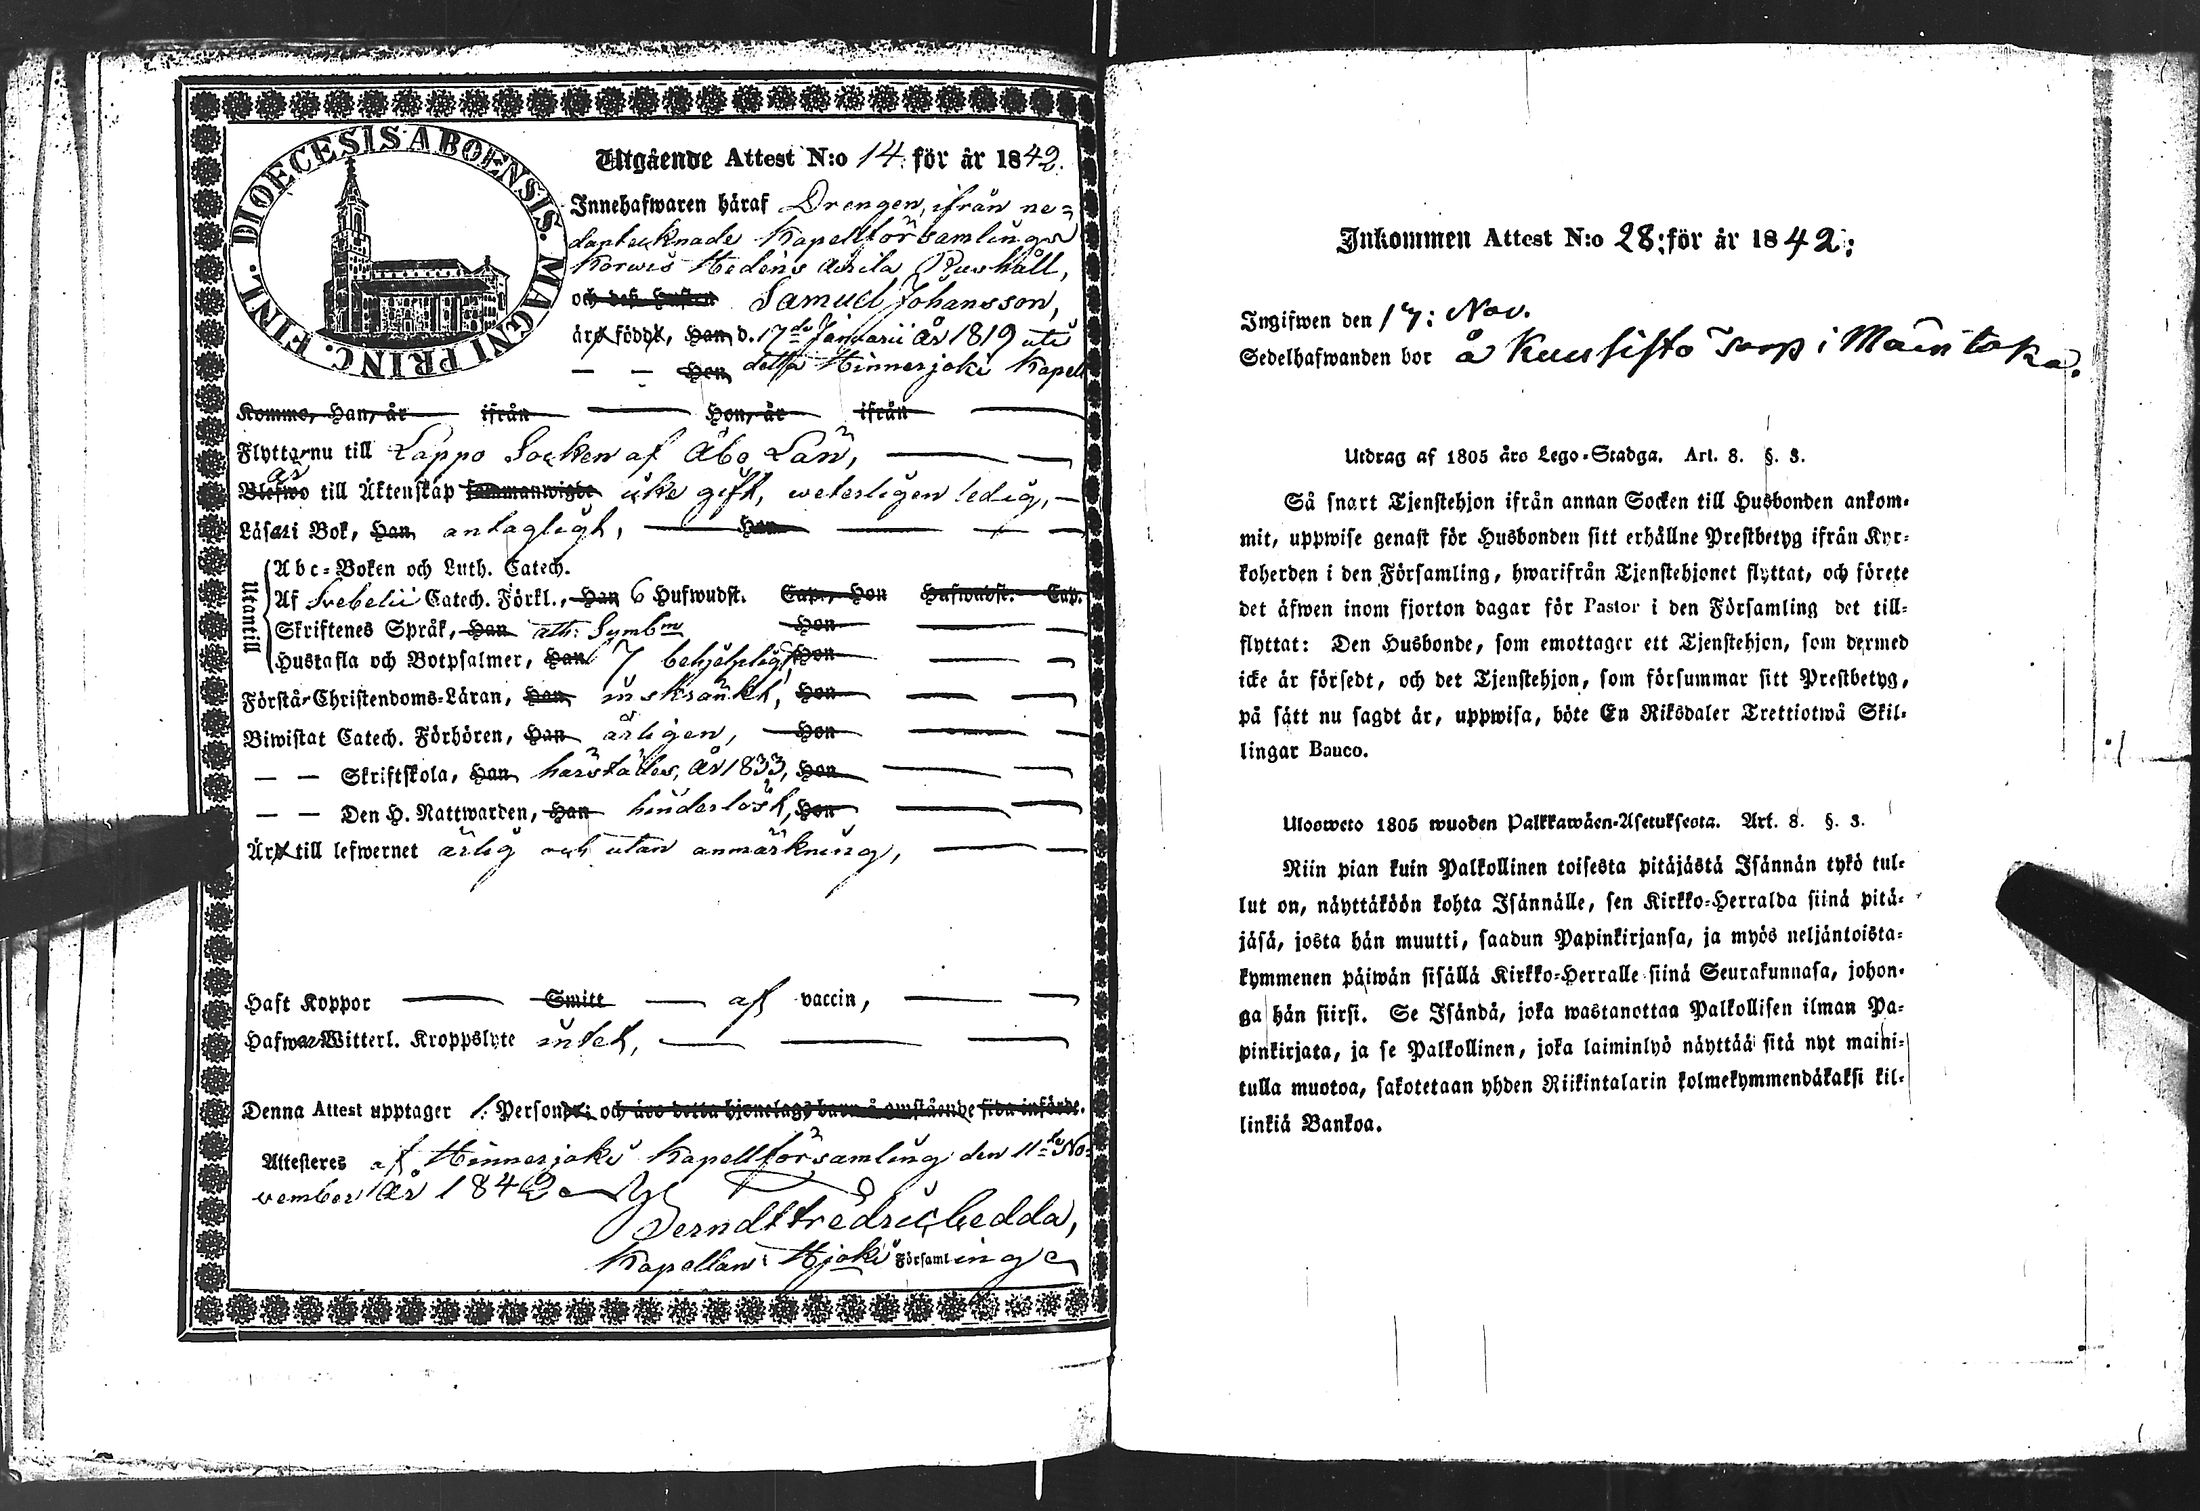 DIOECESIS ABOENSIS. MAGNI PRINC. FINL.
Utgående Attest N:o 14. för år 1842.
Innehafwaren häraf Drengen, ifrån ne=
dantecknade Kapellförsamlings
Korwis Hedens Rushåll,
och dess hustru Samuel Johansson,
äro född, Han, d. 17de Januarii År 1819 uti
— — Hon, detta Hinnerjoki Kapell
Komme, Han, år — ifrån — Hon, år — ifrån —
Flyttar nu till Lappo Socken af Åbo Län, — —
Blefwo till Äktenskap sammanwigde icke gift, weterligen ledig, —
Läsa i Bok, Han, antagligt, — Hon — — —
Utantill
Abc-Boken och Luth. Catech.
Af Svebelii Catech. Förkl., Han 6 Hufwudst. Cap., Hon Hufwudst. Cap.
Skriftenes Språk, Han ath: Symbm Hon — —
Hustafla och Botpsalmer, Han 7 behjelpligt, Hon — —
Förstå Christendoms-Läran, Han inskränkt, Hon — —
Biwistat Catech. Förhören, Han årligen, Hon — —
— — Skriftskola, Han härstädes, År 1833, Hon — —
— — Den H. Nattwarden, Han hinderlöst, Hon — —
Är till lefwernet ärlig och utan anmärkning, — —
Haft Koppor — Smitt — af vaccin, — —
Hafwer Witterl. Kroppslyte intet, — — —
Denna Attest upptager 1. Person; och äro detta hjonelags barn å omstående sida införde.
Attesteres af Hinnerjoki Kapellförsamling den 11te No=
vember År 1842
Berndt Fredric Cedda,
Kapellan i Hjoki Församling
Inkommen Attest N:o 28: för år 1842:
Ingifwen den 17: Nov.
Sedelhafwanden bor å Kuusisto Torp i Mäentaka.
Utdrag af 1805 års Lego-Stadga. Art. 8. §. 3.
Så snart Tjenstehjon ifrån annan Socken till Husbonden ankom-
mit, uppwise genast för Husbonden sitt erhållne Prestbetyg ifrån Kyr-
koherden i den Församling, hwarifrån Tjenstehjonet flyttat, och förete
det äfwen inom fjorton dagar för Pastor i den Församling det till-
flyttat: Den Husbonde, som emottager ett Tjenstehjon, som dermed
icke är försedt, och det Tjenstehjon, som försummar sitt Prestbetyg,
på sätt nu sagdt är, uppwisa, böte En Riksdaler Trettiotwå Skil-
lingar Banco.
Ulosweto 1805 wuoden Palkkawäen-Asetuksesta. Art. 8. §. 3.
Niin pian kuin Palkollinen toisesta pitäjästä Isännän tykö tul-
lut on, näyttäköön kohta Isännälle, sen Kirkko-Herralda siinä pitä-
jäsä, josta hän muutti, saadun Papinkirjansa, ja myös neljäntoista-
kymmenen päiwän sisällä Kirkko-Herralle siinä Seurakunnasa, johon-
ga hän siirsi. Se Isändä, joka wastanottaa Palkollisen ilman Pa-
pinkirjata, ja se Palkollinen, joka laiminlyö näyttää sitä nyt maini-
tulla muotoa, sakotetaan yhden Riikintalarin kolmekymmendäkaksi kil-
linkiä Bankoa.